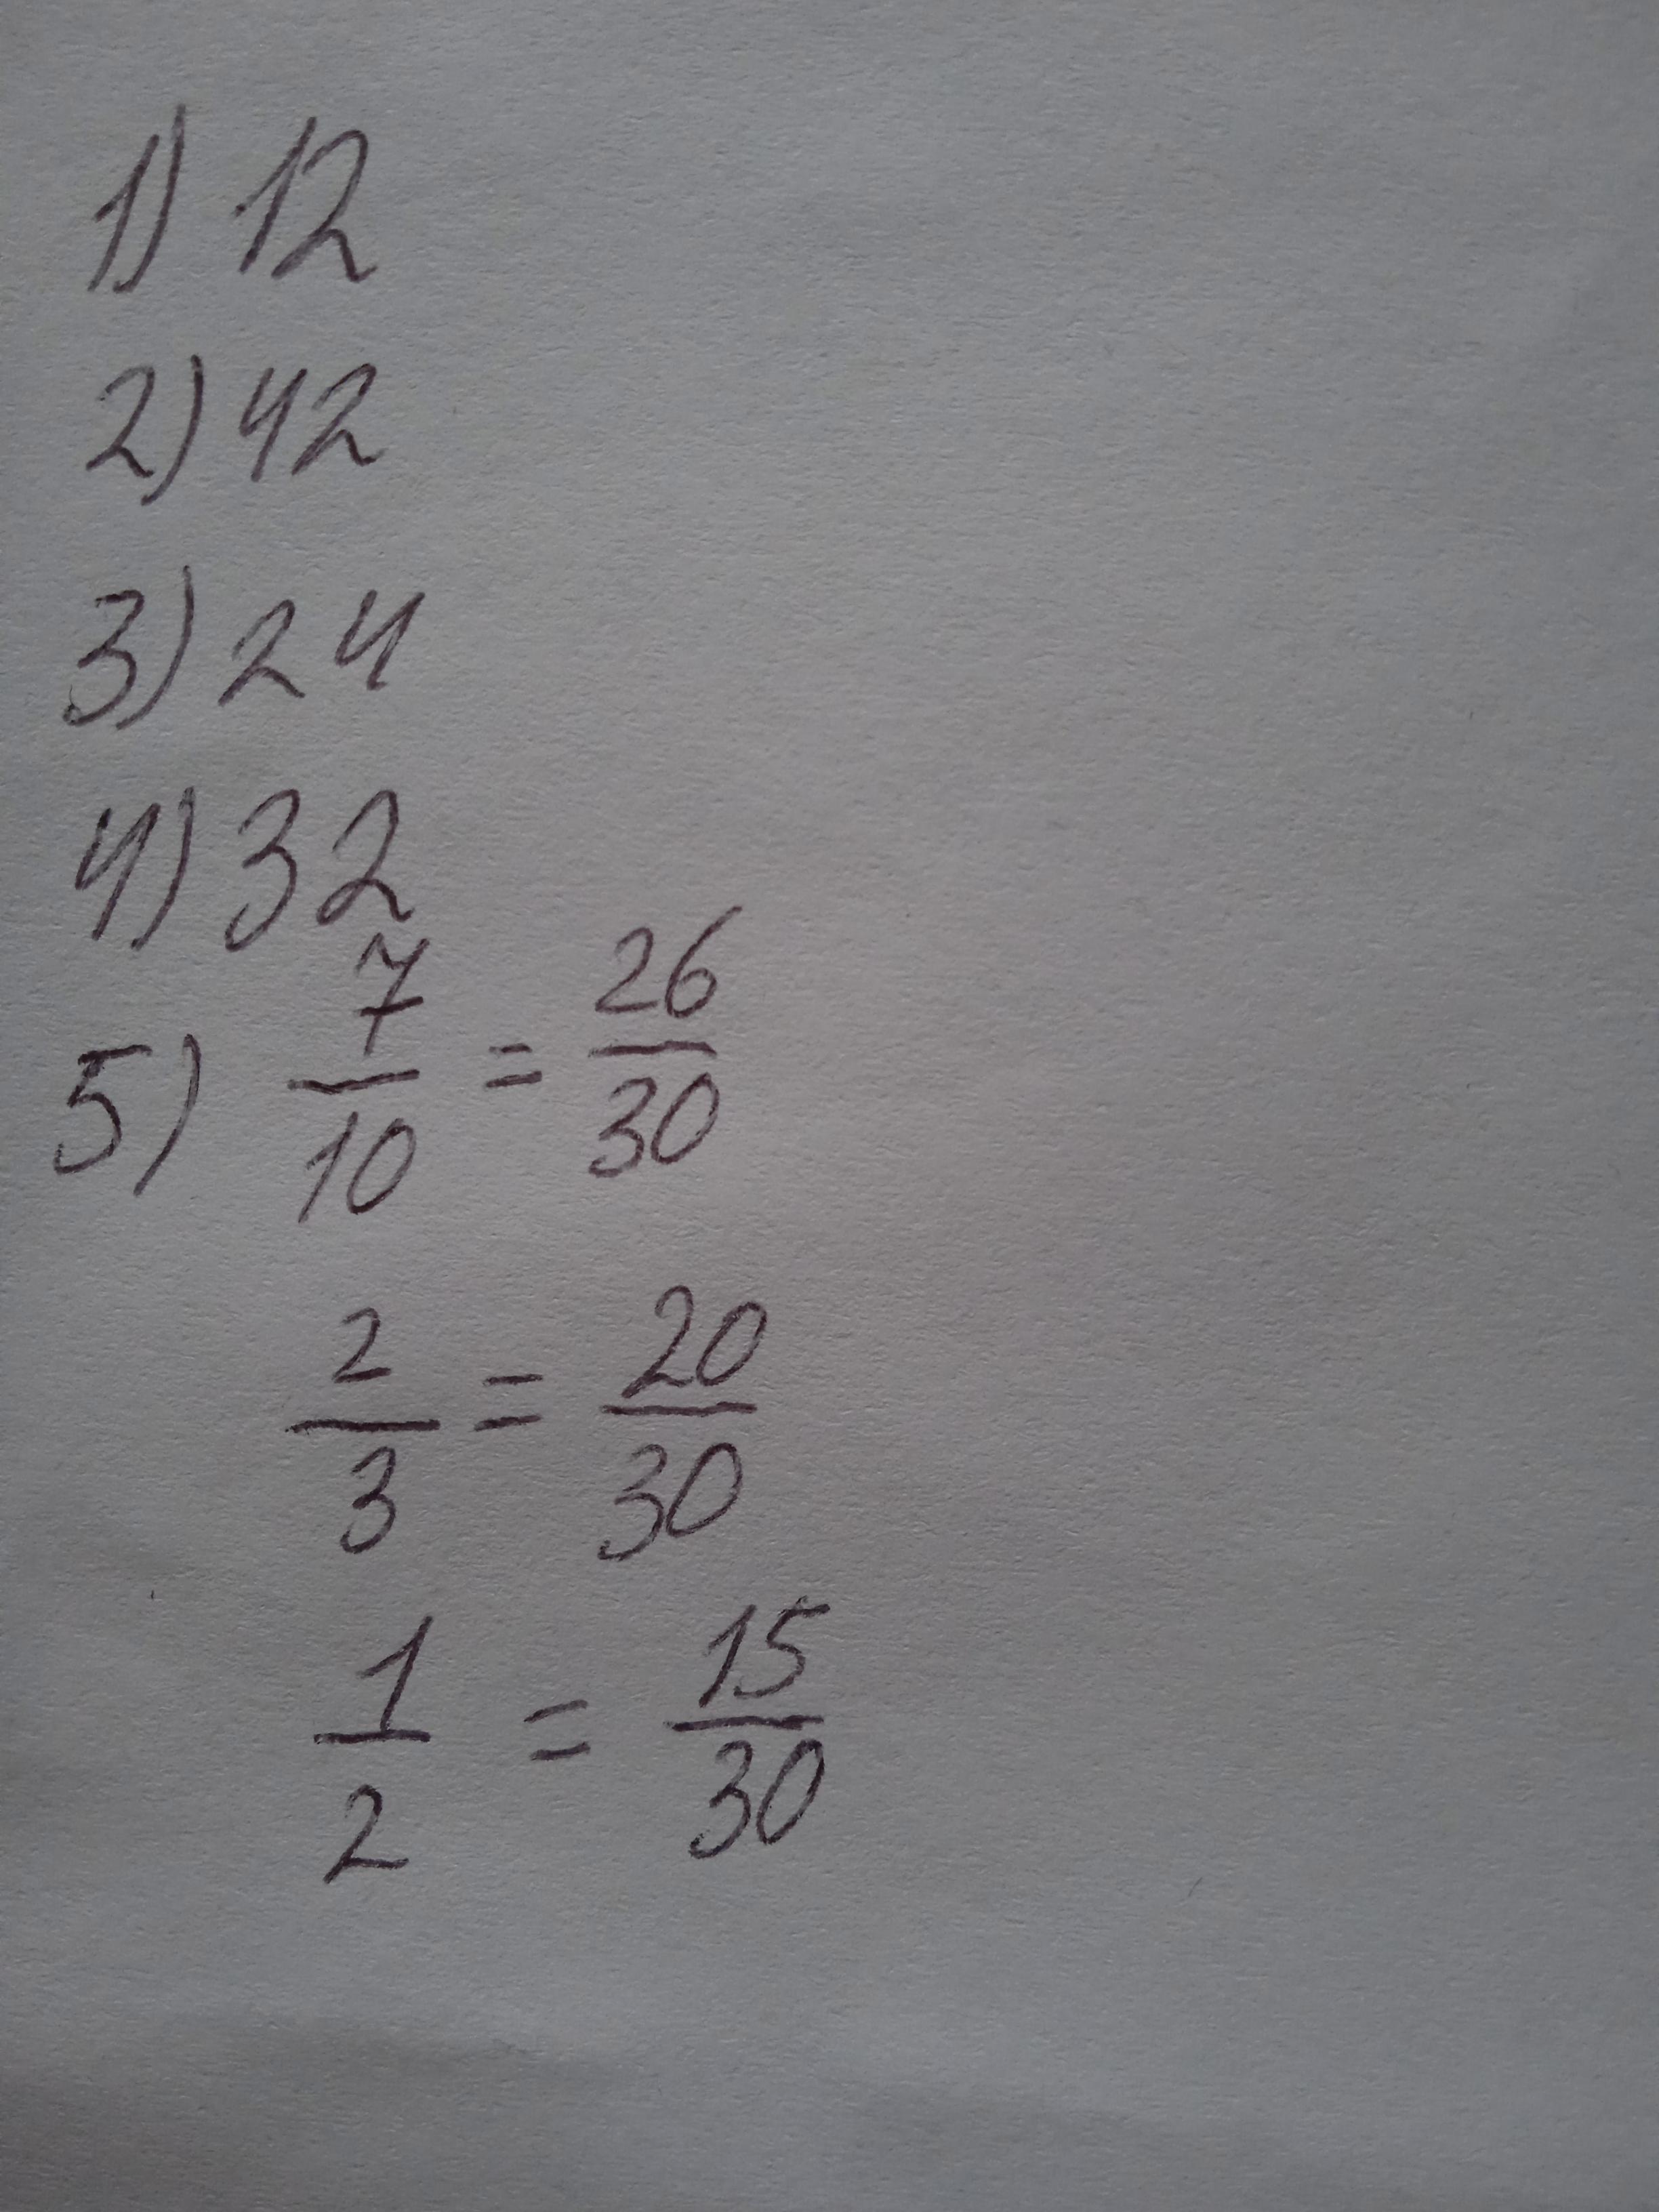 1) 12
2) 42
3) 24
4) 32
5) 7/10 = 26/30
2/3 = 20/30
1/2 = 15/30